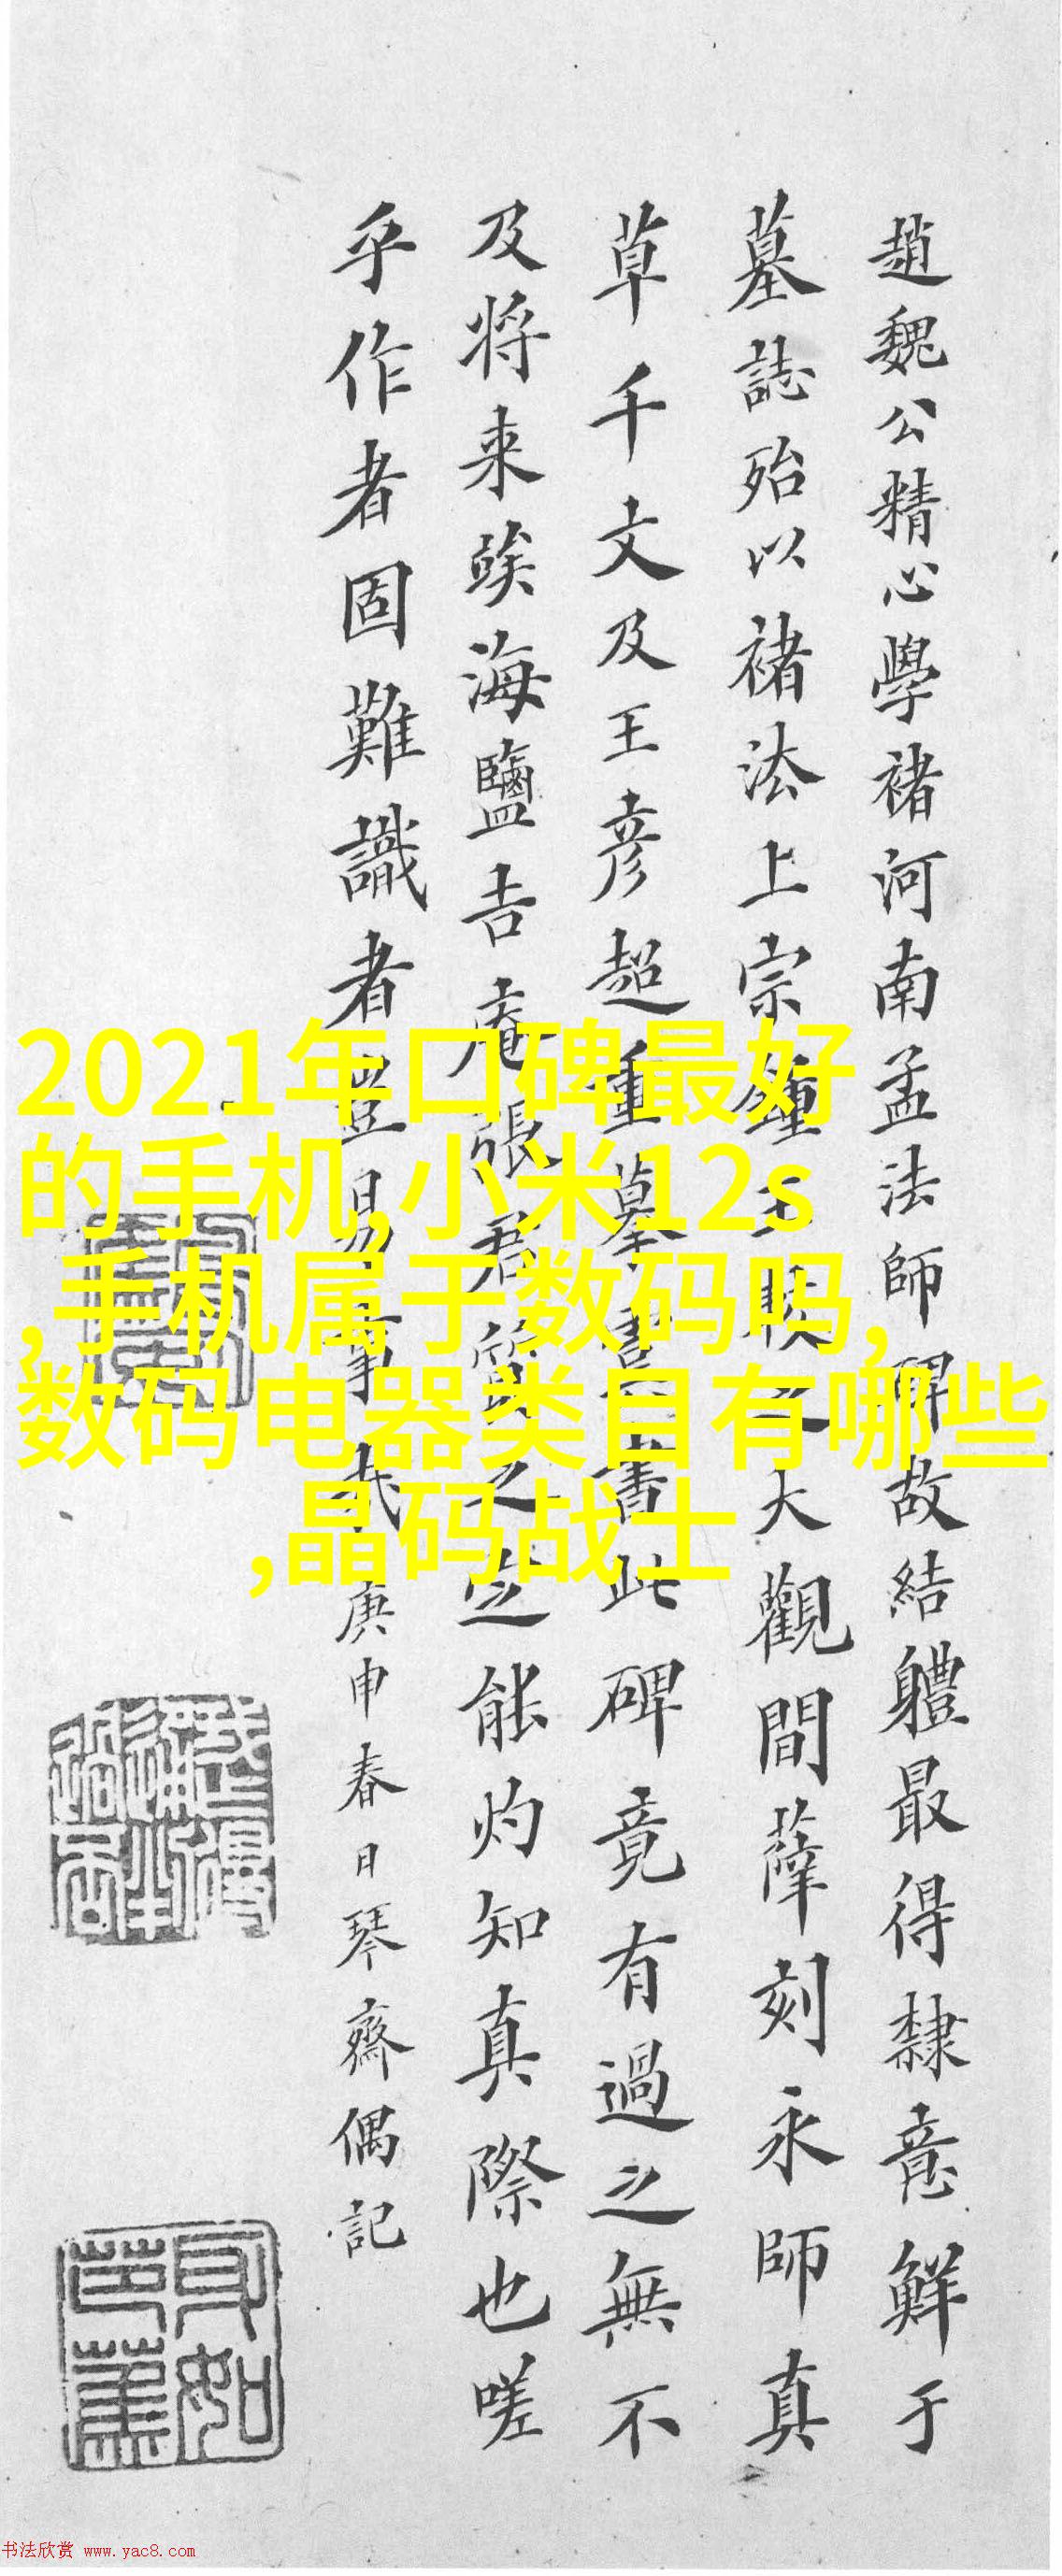 趙魏公精心學褚河南孟法師碑故結軆最得隸意鮮于
墓誌殆以褚法上宗鍾王賅之大觀間薛刻永師真
草千文及王彦超重摹書此碑竟有過之無不
及将来竢海鹽吉庵張君質之定能灼知真際也嗟
乎作者固難識者豈易事哉庚申春日琴齋偶記
2021年口碑最好
的手机,小米12s
,手机属于数码吗,
数码电器类目有哪些
,晶码战士
书法欣赏 www.yac8.com